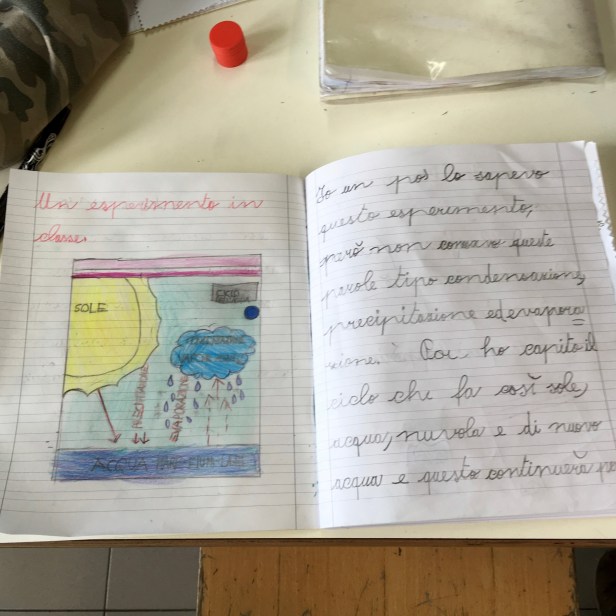 Un esperimento in
classe.
SOLE
PRECIPITAZIONE
EVAPORAZIONE
ACQUA
Io un po' lo sapevo
questo esperemento,
però non queste
parole tipo condensazione,
precipitazione ed evapora
zione. Poi ho capito il
ciclo che fa così sole,
acqua, nuvola e di nuovo
acqua e questo continuerà pe